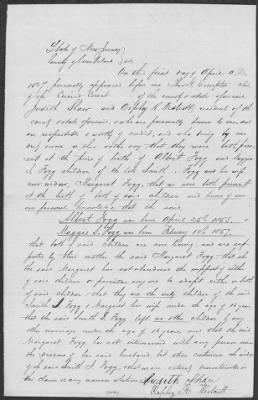 State of New Jersey
County of Cumberland } SS.
On this first day of April A.D.
1867 personally appeared before me
of the county & state aforesaid
Judith Shaw and Ruth R. Westcott, residents of the
county & state aforesaid, who are personally known to me, and
are respectable & worthy of credit, and who being by me
duly sworn on their oaths say that they were both pres-
ent at the time of birth of Albert Fogg and Maggie
S. Fogg children of the late Smith S. Fogg and his wife
now widow, Margaret Fogg, that we were both present
at the birth of both of said children and know of
our personal knowledge that the said
Albert Fogg was born April 25th 1853. &
Maggie S. Fogg was born February 10th 1857.
that both of said children are now living, and are sup-
ported by their mother the said Margaret Fogg: that
the said Margaret has not abandoned the support of either
of said children or permitted any one to adopt either or both
of said children; that they are the only children of the said
Smith S. Fogg & Margaret his wife under the age of 16 years
that the said Smith S. Fogg left no other children of any
other marriage under the age of 16 years and that the said
Margaret Fogg has not intermarried with any person since
the decease of her said husband, but still continues the widow
of the said Smith S. Fogg, that we are entirely disinterested in
the claim in any manner whatever. Judith Shaw
Westcott